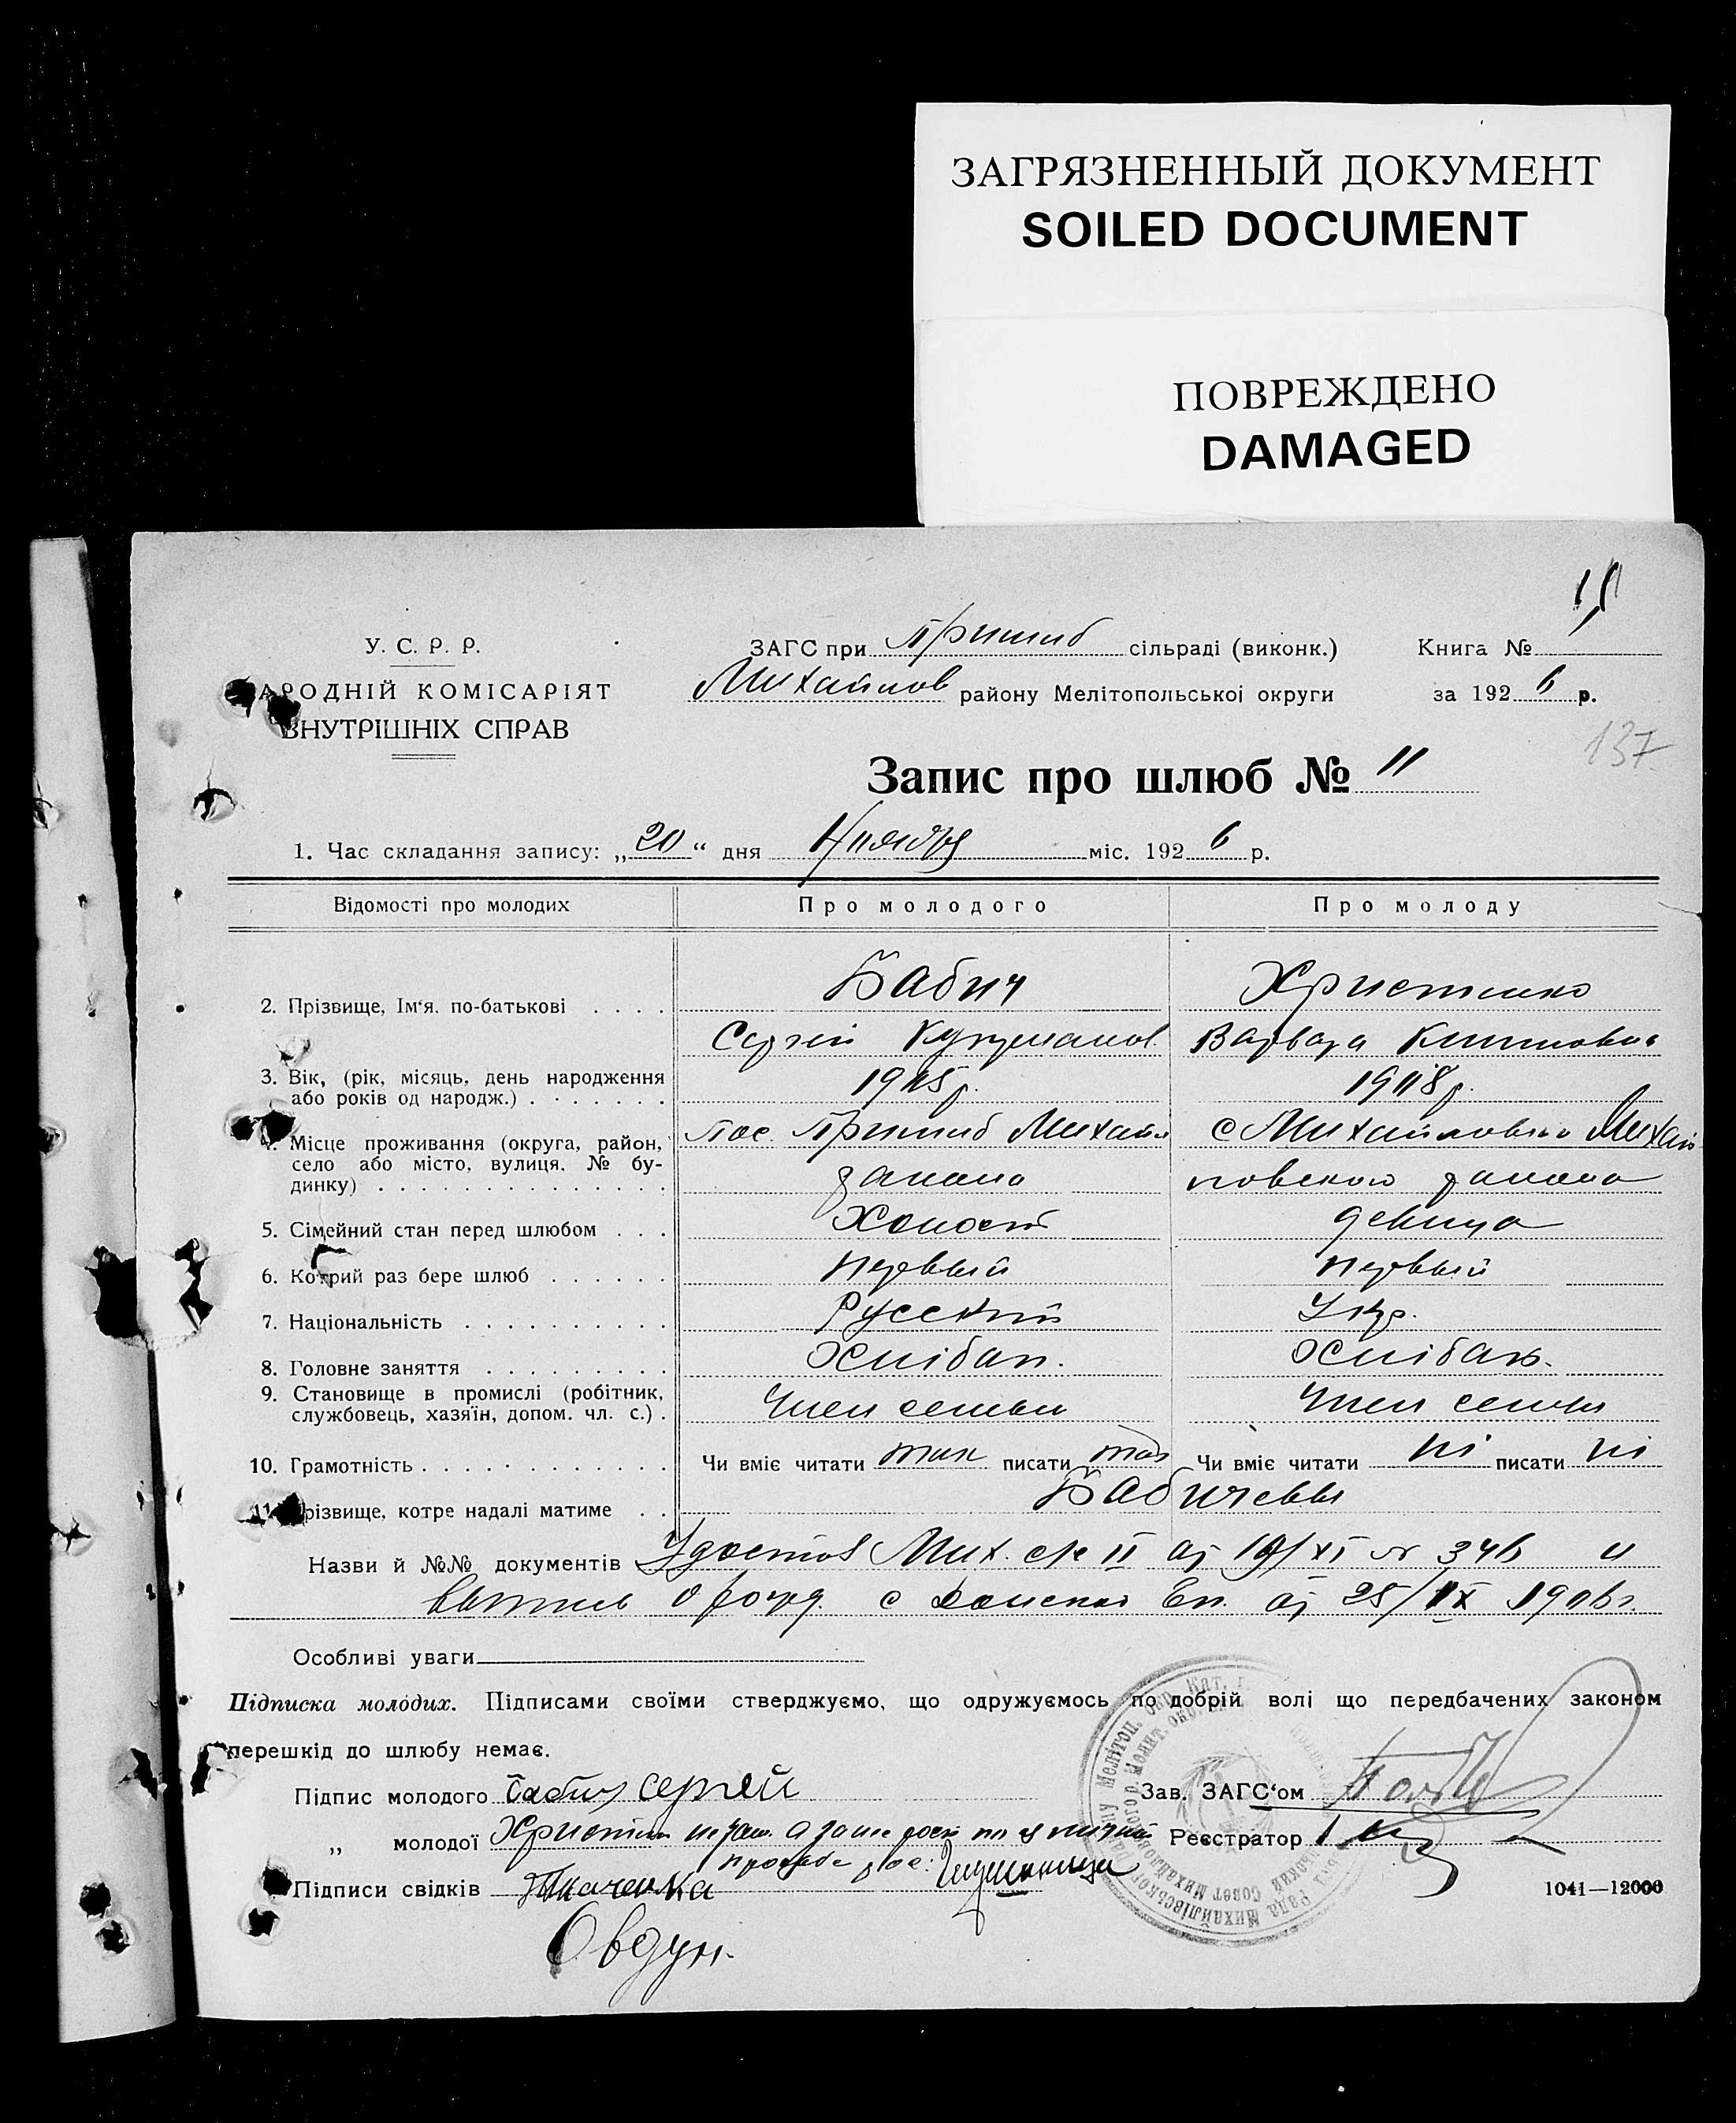 ЗАГРЯЗНЕННЫЙ ДОКУМЕНТ
SOILED DOCUMENT
ПОВРЕЖДЕНО
DAMAGED
У. С. Р. Р.
АРОДНІЙ КОМІСАРІЯТ
ВНУТРІШНІХ СПРАВ
ЗАГС при Пришиб сільраді (виконк.)
Михайлов району Мелітопольської округи
Книга №
за 192 6 р.
137
Запис про шлюб № 11
1. Час складання запису: „20“ дня Ноября міс. 192 6 р.
Відомості про молодих Про молодого Про молоду
2. Прізвище, Ім‘я, по-батькові . . . . Бабич Христенко
Сергій Варвара
3. Вік, (рік, місяць, день народження
або років од народж.) . . . . . . .
4. Місце проживання (округа, район, пос. Пришиб Михайл с Михайловки Михай
село або місто, вулиця, № бу-
динку) . . . . . . . . . . . . . . . района ловского района
5. Сімейний стан перед шлюбом . . . Холост девица
6. Котрий раз бере шлюб . . . . . . первый первый
7. Національність . . . . . . . . . . Русский Укр.
8. Головне заняття . . . . . . . . . Хлібап. Хлібап.
9. Становище в промислі (робітник, Член семьи Член семьи
службовець, хазяїн, допом. чл. с.) .
10. Грамотність . . . . . . . . . . . . Чи вміє читати так писати так Чи вміє читати ні писати ні
11. Прізвище, котре надалі матиме . . Бабичевы
Назви й №№ документів Удостов Мих. с/с II от 19/XI № 346 и
о рожд. с Еп. от 25/IX
Особливі уваги
Підписка молодих. Підписами своїми стверджуємо, що одружуємось по добрій волі що передбачених законом
перешкід до шлюбу немає.
Підпис молодого Бабич Сергей
Зав. ЗАГС‘ом
„ молодої
Реєстратор
Підписи свідків Ткаченка
1041—12000